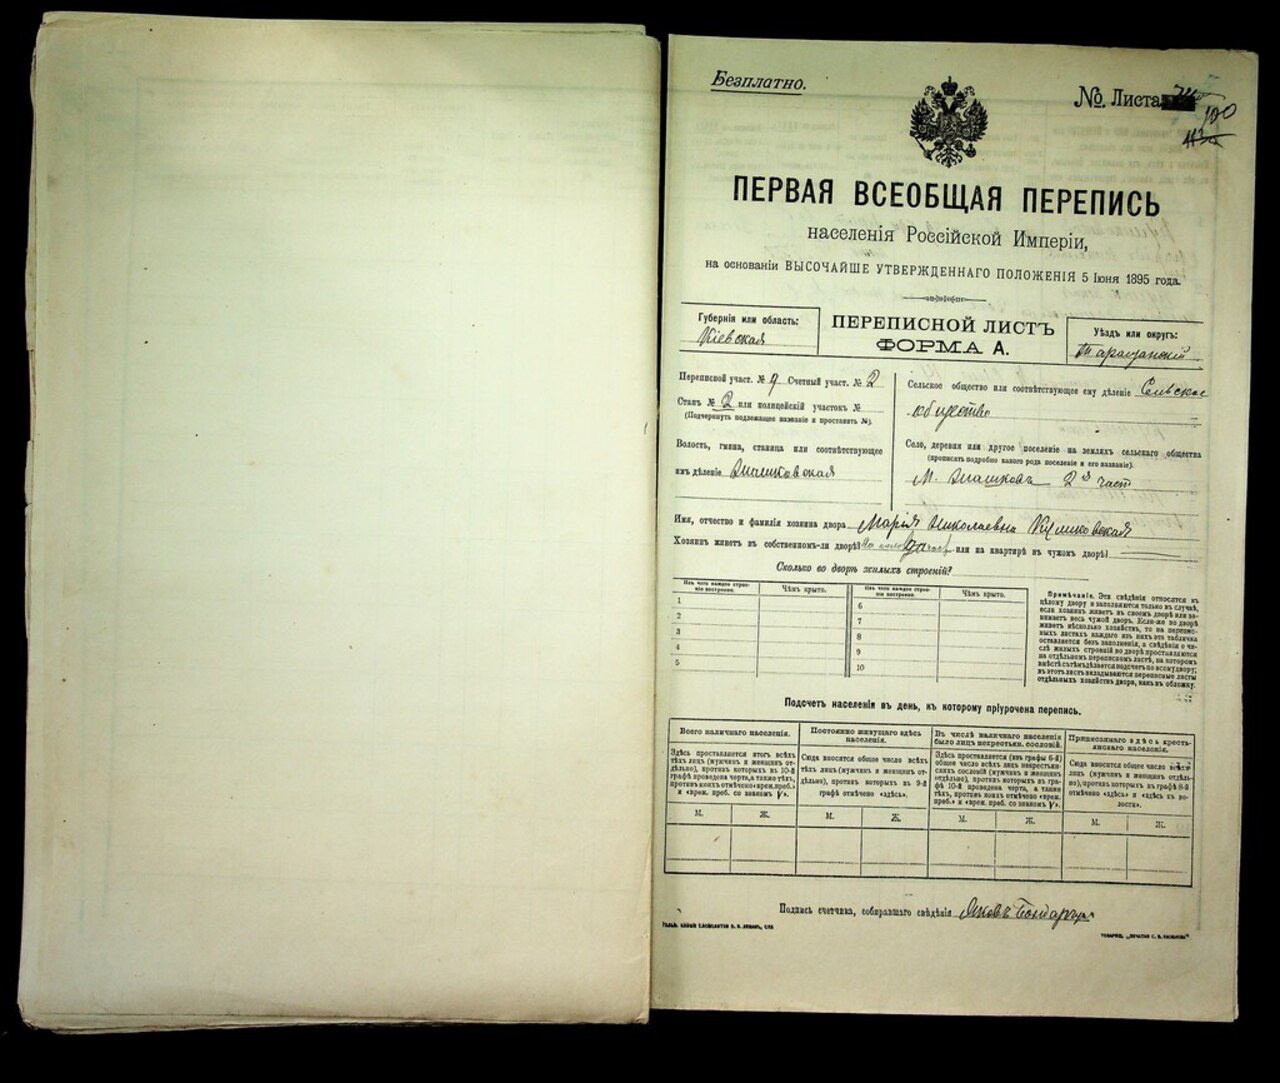 Безплатно.
№ Листа
100
ПЕРВАЯ ВСЕОБЩАЯ ПЕРЕПИСЬ
населенія Россійской Имперіи,
на основаніи ВЫСОЧАЙШЕ УТВЕРЖДЕННАГО ПОЛОЖЕНІЯ 5 Іюня 1895 года.
Губернія или область:
Кіевская
ПЕРЕПИСНОЙ ЛИСТЪ
ФОРМА А.
Уѣздъ или округъ:
Таращанскій
Переписной участ. № 9 Счетный участ. № 2
Станъ № 2 или полицейскій участокъ №
(Подчеркнуть подлежащее названіе и проставить №).
Волость, гмина, станица или соотвѣтствующее
имъ дѣленіе
Сельское общество или соотвѣтствующее ему дѣленіе Сельское
общество
Село, деревня или другое поселеніе на земляхъ сельскаго общества
(прописать подробно какого рода поселеніе и его названіе).
М. 2я част
Имя, отчество и фамилія хозяина двора Марія Николаевна Куликовская
Хозяинъ живетъ въ собственномъ-ли дворѣ? да или на квартирѣ въ чужомъ дворѣ?
Сколько во дворѣ жилыхъ строеній?
Изъ чего каждое строеніе построено.
Чѣмъ крыто.
Изъ чего каждое строеніе построено.
Чѣмъ крыто.
1
2
3
4
5
6
7
8
9
10
Примѣчаніе. Эти свѣдѣнія относятся къ
цѣлому двору и заполняются только въ случаѣ,
если хозяинъ живетъ въ своемъ дворѣ или занимаетъ
весь чужой дворъ. Если-же во дворѣ
живетъ нѣсколько хозяйствъ, то на переписныхъ
листахъ каждаго изъ нихъ эта табличка
оставляется безъ заполненія, а свѣдѣнія о числѣ
жилыхъ строеній во дворѣ проставляются
на отдѣльномъ переписномъ листѣ, на которомъ
вмѣстѣ съ тѣмъ дѣлается подсчетъ по всему двору;
въ этотъ листъ вкладываются переписные листы
отдѣльныхъ хозяйствъ двора, какъ въ обложку.
Подсчетъ населенія въ день, къ которому пріурочена перепись.
Всего наличнаго населенія.
Здѣсь проставляется итогъ всѣхъ
тѣхъ лицъ (мужчинъ и женщинъ отдѣльно),
противъ которыхъ въ 10-й
графѣ проведена черта, а также тѣхъ,
противъ коихъ отмѣчено «врем. преб.»
и «врем. преб. со знакомъ V».
М. Ж.
Постоянно живущаго здѣсь
населенія.
Сюда вносится общее число всѣхъ
тѣхъ лицъ (мужчинъ и женщинъ отдѣльно),
противъ которыхъ въ 9-й
графѣ отмѣчено «здѣсь».
М. Ж.
Въ числѣ наличнаго населенія
было лицъ некрестьян. сословій.
Здѣсь проставляется (изъ графы 6-й)
общее число всѣхъ лицъ некрестьянскихъ
сословій (мужчинъ и женщинъ
отдѣльно), противъ которыхъ въ графѣ
10-й проведена черта, а также
тѣхъ, противъ коихъ отмѣчено «врем.
преб.» и «врем. преб. со знакомъ V».
М. Ж.
Приписаннаго здѣсь крестьянскаго
населенія.
Сюда вносится общее число всѣхъ
лицъ (мужчинъ и женщинъ отдѣльно),
противъ которыхъ въ графѣ 8-й
отмѣчено «здѣсь» и «здѣсь въ волости».
М. Ж.
Подпись счетчика, собиравшаго свѣдѣнія Яковъ Бондарчук